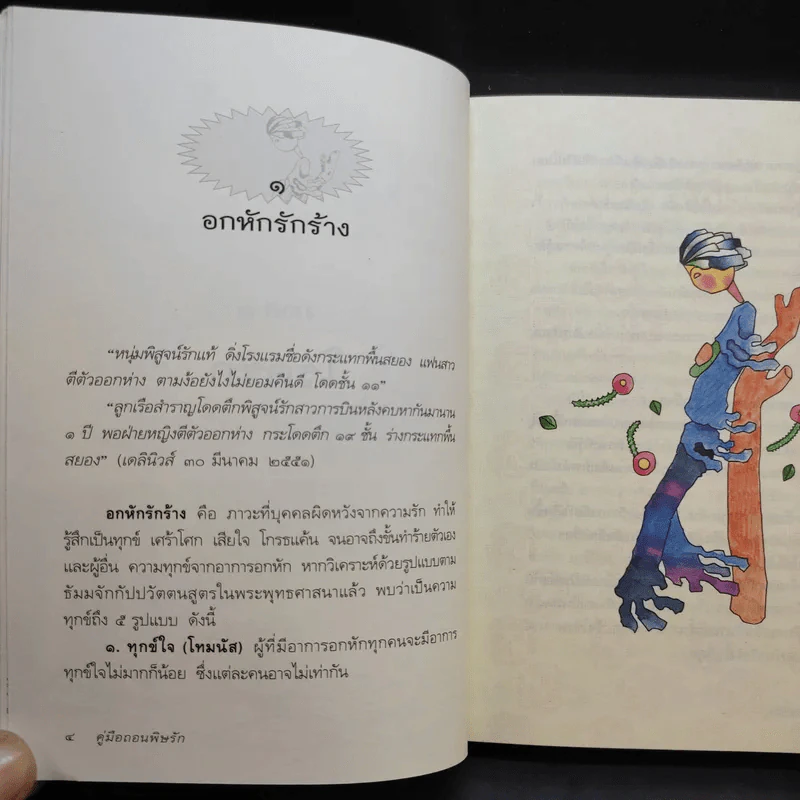 ๑
อกหักรักร้าง
“หนุ่มพิสูจน์รักแท้ ดิ่งโรงแรมชื่อดังกระแทกพื้นสยอง แฟนสาว
ตีตัวออกห่าง ตามง้อยังไงไม่ยอมคืนดี โดดชั้น ๑๑”
“ลูกเรือสำราญโดดตึกพิสูจน์รักสาวการบินหลังคบหากันมานาน
๑ ปี พอฝ่ายหญิงตีตัวออกห่าง กระโดดตึก ๑๙ ชั้น ร่างกระแทกพื้น
สยอง” (เดลินิวส์ ๓๐ มีนาคม ๒๕๕๑)
อกหักรักร้าง คือ ภาวะที่บุคคลผิดหวังจากความรัก ทำให้
รู้สึกเป็นทุกข์ เศร้าโศก เสียใจ โกรธแค้น จนอาจถึงขั้นทำร้ายตัวเอง
และผู้อื่น ความทุกข์จากอาการอกหัก หากวิเคราะห์ด้วยรูปแบบตาม
ธัมมจักกัปปวัตตนสูตรในพระพุทธศาสนาแล้ว พบว่าเป็นความ
ทุกข์ถึง ๕ รูปแบบ ดังนี้
๑. ทุกข์ใจ (โทมนัส) ผู้ที่มีอาการอกหักทุกคนจะมีอาการ
ทุกข์ใจไม่มากก็น้อย ซึ่งแต่ละคนอาจไม่เท่ากัน
๔ คู่มือถอนพิษรัก